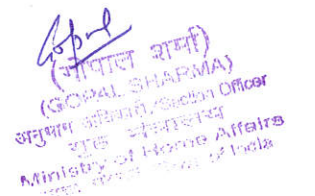 Gopal
(गोपाल शर्मा)
(GOPAL SHARMA)
अनुभाग अधिकारी/Section Officer
गृह मंत्रालय
Ministry of Home Affairs
भारत सरकार/Govt. of India